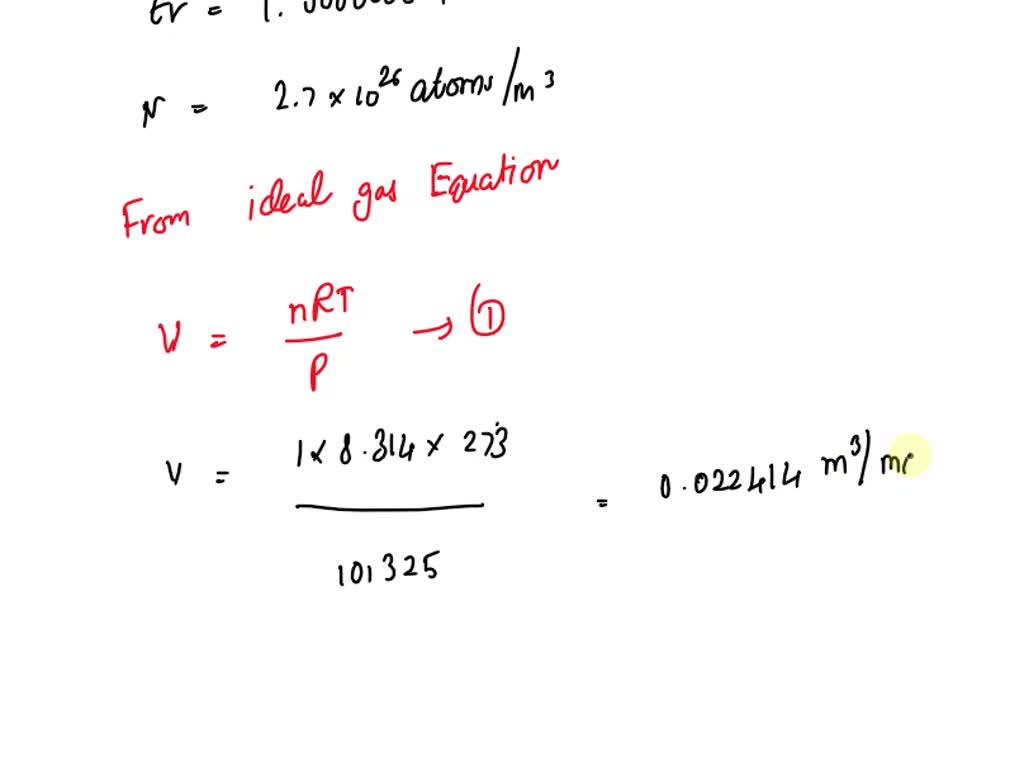 εr = 1.
N = 2.7 × 10²⁶ atoms/m³
From ideal gas Equation
V = nRT / P → ①
V = 1 × 8.314 × 273 / 101325 = 0.022414 m³/mo